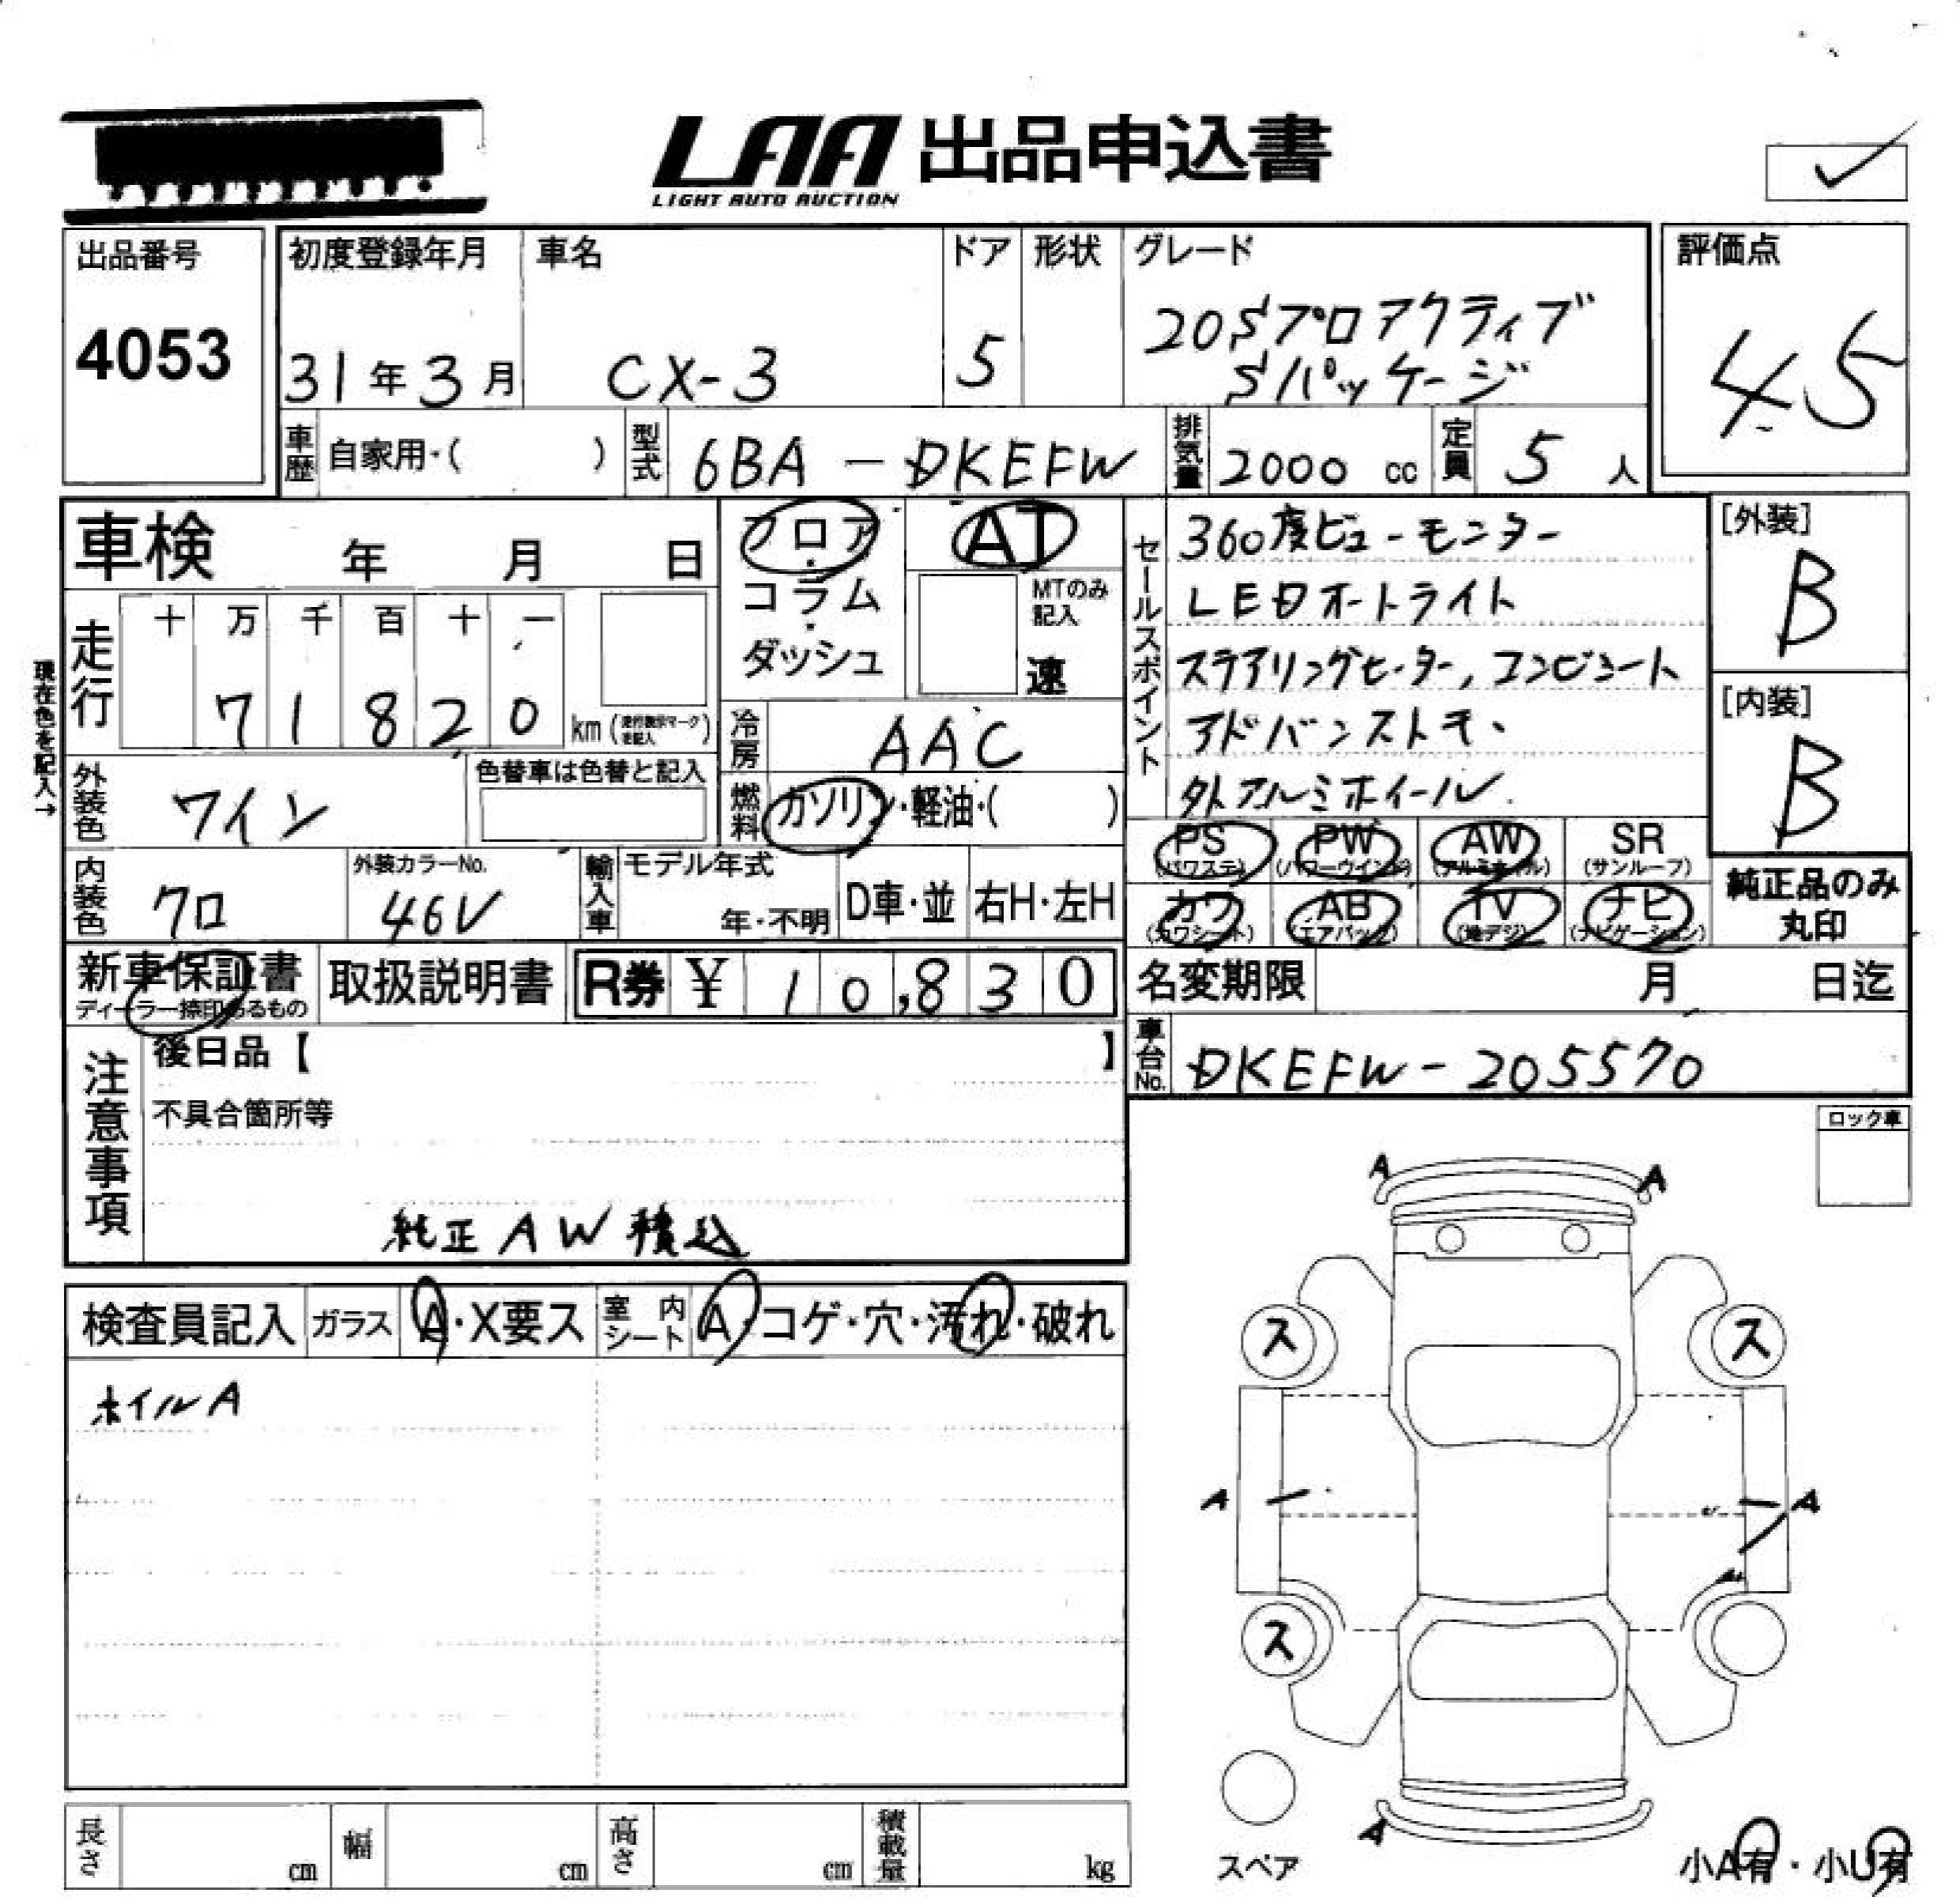 LAA 出品申込書
LIGHT AUTO AUCTION
出品番号 初度登録年月 車名 ドア 形状 グレード 評価点
4053 31年3月 CX-3 5 20Sプロアクティブ 4.5
Sパッケージ
車歴 自家用・( ) 型式 6BA-DKEFW 排気量 2000 cc 定員 5 人
車検 年 月 日 フロア AT セールスポイント 360度ビューモニター [外装]
コラム MTのみ記入 LEDオートライト B
走行 十 万 千 百 十 一
71820 km ダッシュ 速 ステアリングヒーター, コンビシート [内装]
冷房 AAC アドバンストキー B
現在色を記入→
外装色 ワイン 色替車は色替と記入 燃料 ガソリン・軽油・( ) 外アルミホイール
PS PW AW SR
(パワステ) (パワーウインド) (アルミホイル) (サンルーフ)
内装色 クロ 外装カラーNo. 46V 輸入車 モデル年式 年・不明 D車・並 右H・左H カワ AB TV ナビ 純正品のみ
(カワシート) (エアバッグ) (地デジ) (ナビゲーション) 丸印
新車保証書 取扱説明書 R券 ¥ 10,830 名変期限 月 日迄
ディーラー捺印あるもの
注意事項 後日品【 】 車台No. DKEFW-205570
不具合箇所等 ロック車
純正AW積込
検査員記入 ガラス A・X要ス 室内シート A・コゲ・穴・汚れ・破れ
ホイルA
A A
ス ス
A A
ス
A
スペア 小A有・小U有
長さ cm 幅 cm 高さ cm 積載量 kg